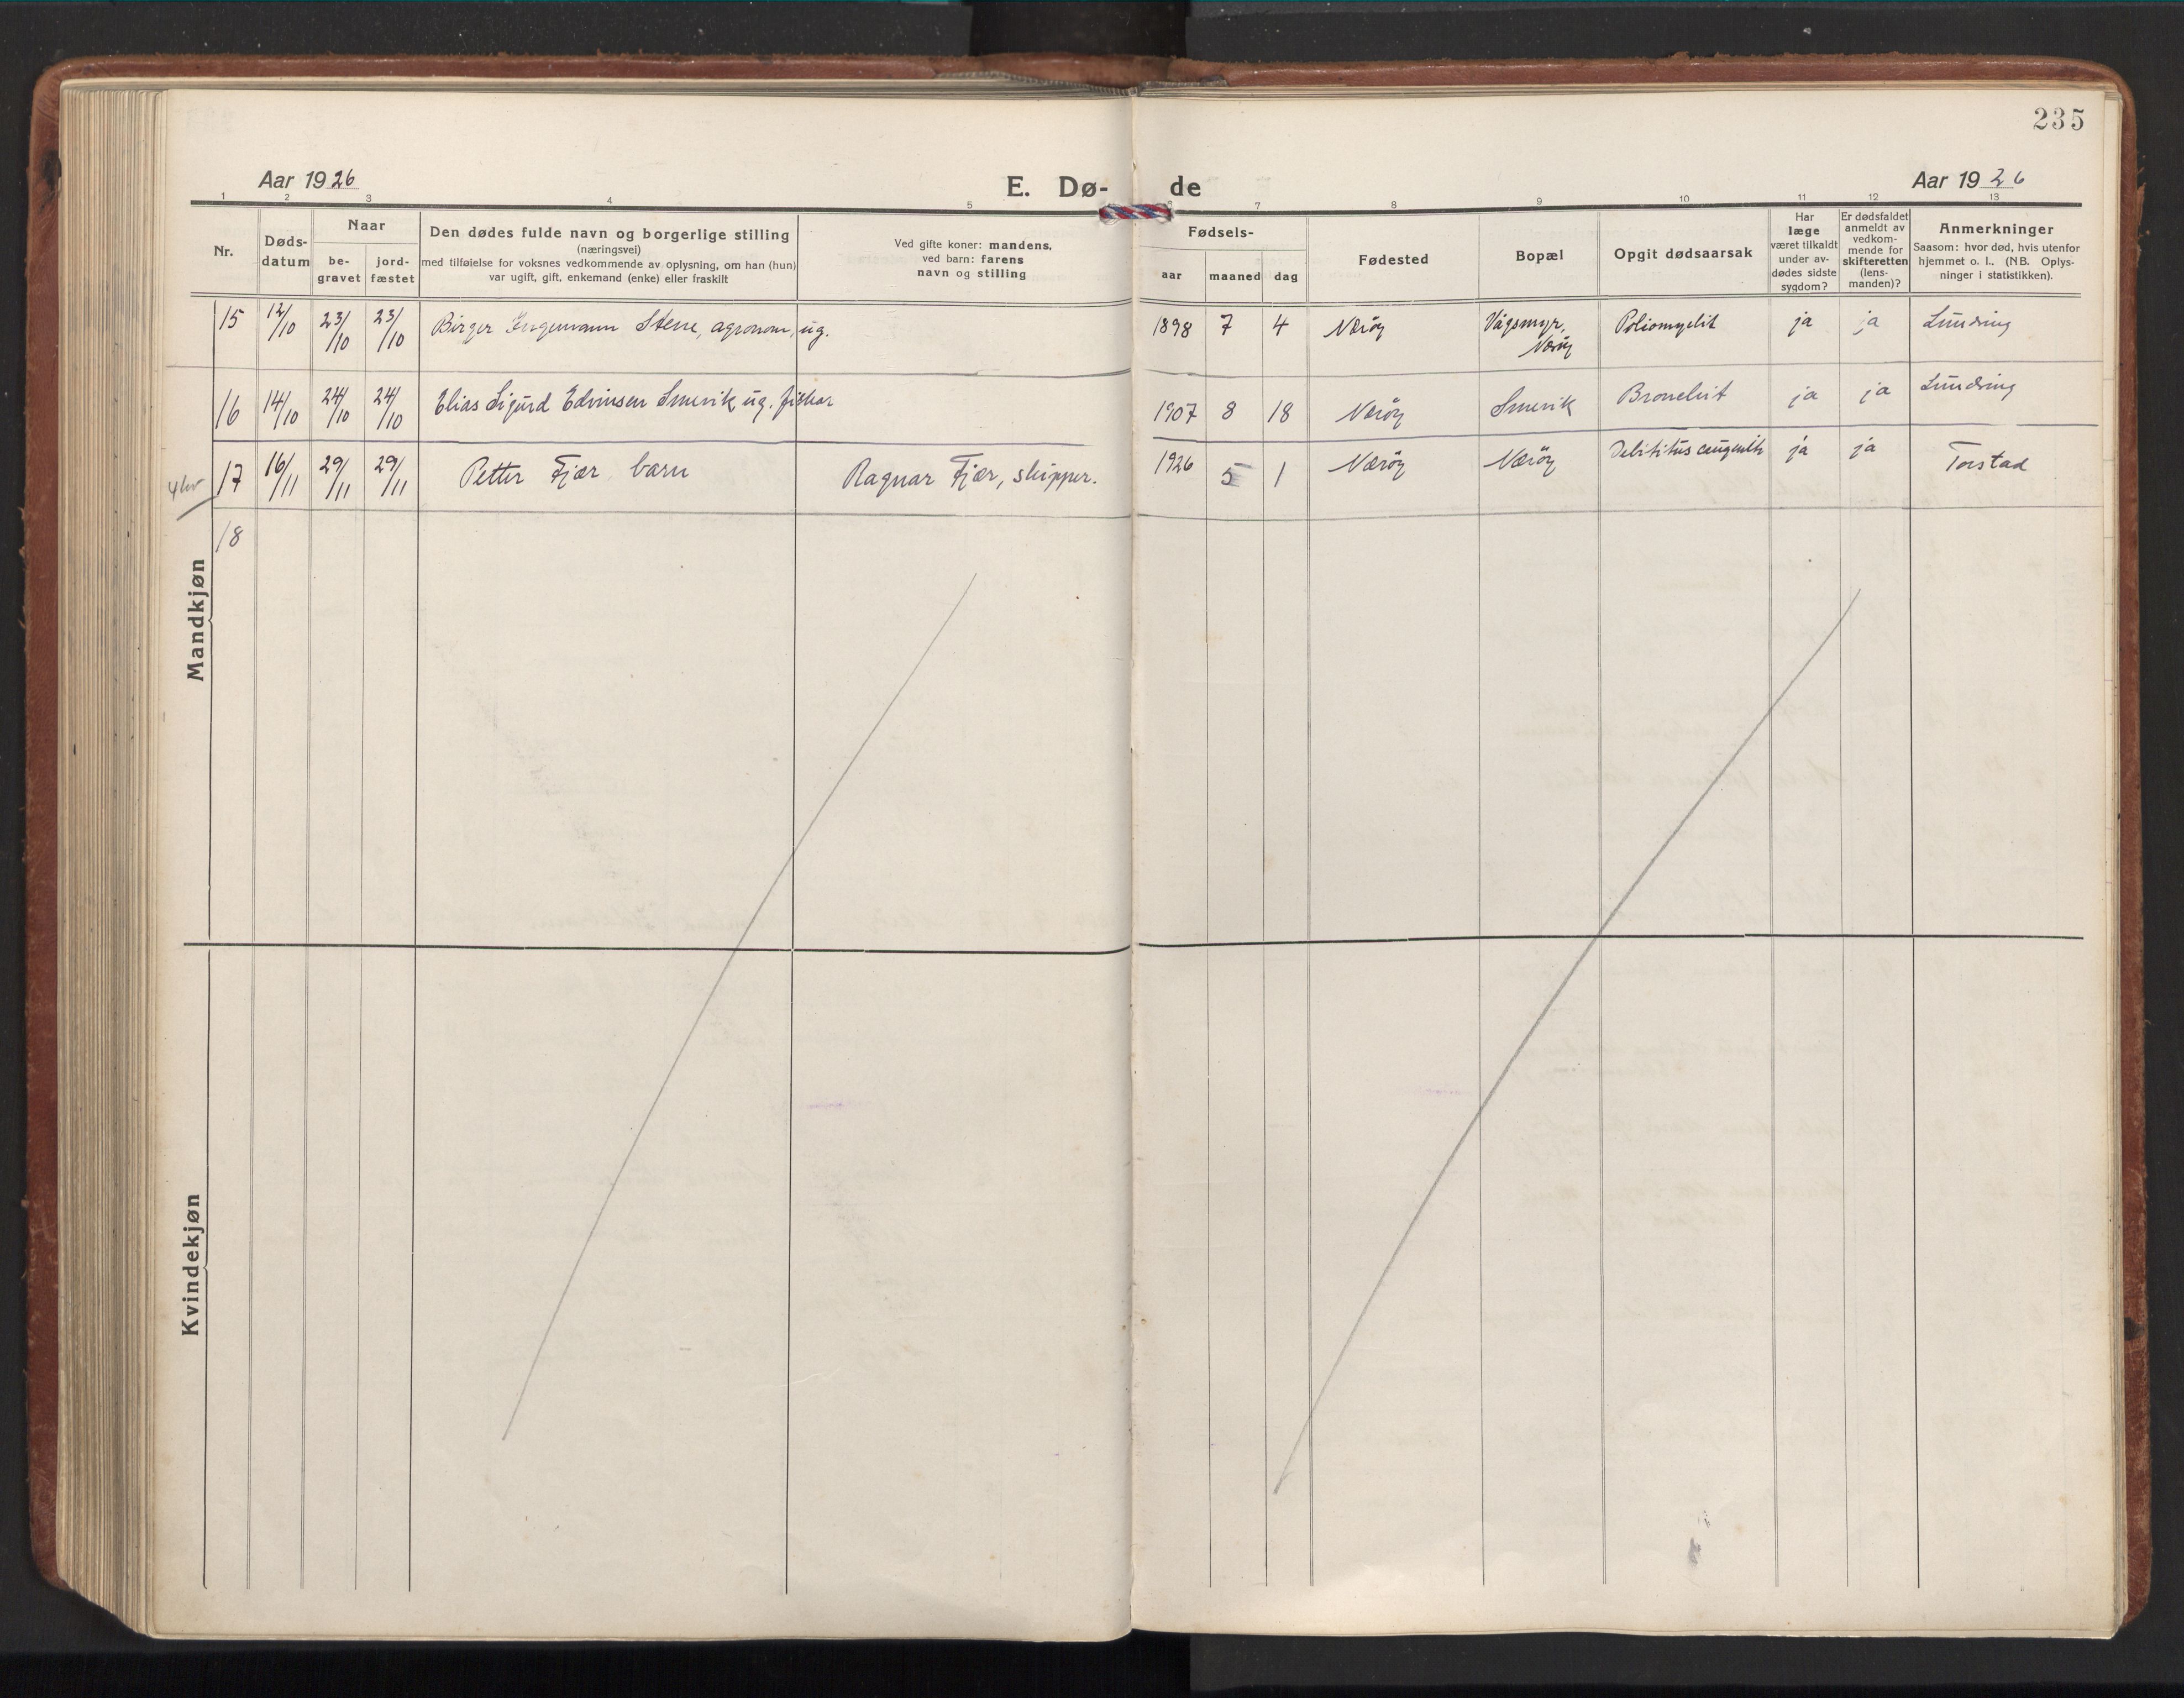 235
Aar 1926
E. Dø- de
Aar 1926
1 2 3 4 5 6 7 8 9 10 11 12 13
Nr.
Døds-
datum
Naar
be-
gravet
jord-
fæstet
Den dødes fulde navn og borgerlige stilling
(næringsvei)
med tilføielse for voksnes vedkommende av oplysning, om han (hun)
var ugift, gift, enkemand (enke) eller fraskilt
Ved gifte koner: mandens,
ved barn: farens
navn og stilling
Fødsels-
aar maaned dag
Fødested
Bopæl
Opgit dødsaarsak
Har
læge
været tilkaldt
under av-
dødes sidste
sygdom?
Er dødsfaldet
anmeldt av
vedkom-
mende for
skifteretten
(lens-
manden)?
Anmerkninger
Saasom: hvor død, hvis utenfor
hjemmet o. l.. (NB. Oplys-
ninger i statistikken).
15 12/10 23/10 23/10 Birger Ingemann Stene, agronom, ug. 1898 7 4 Nærøy Vågsmyr, Nærøy Poliomyelit ja ja Lundring
16 14/10 24/10 24/10 Elias Sigurd Edvinsen Smevik ug. fisker 1907 8 18 Nærøy Smevik ja ja Lundring
17 16/11 29/11 29/11 Petter Fjær barn Ragnar Fjær, skipper. 1926 5 1 Nærøy Nærøy ja ja Torstad
18
Mandkjøn
Kvindekjøn